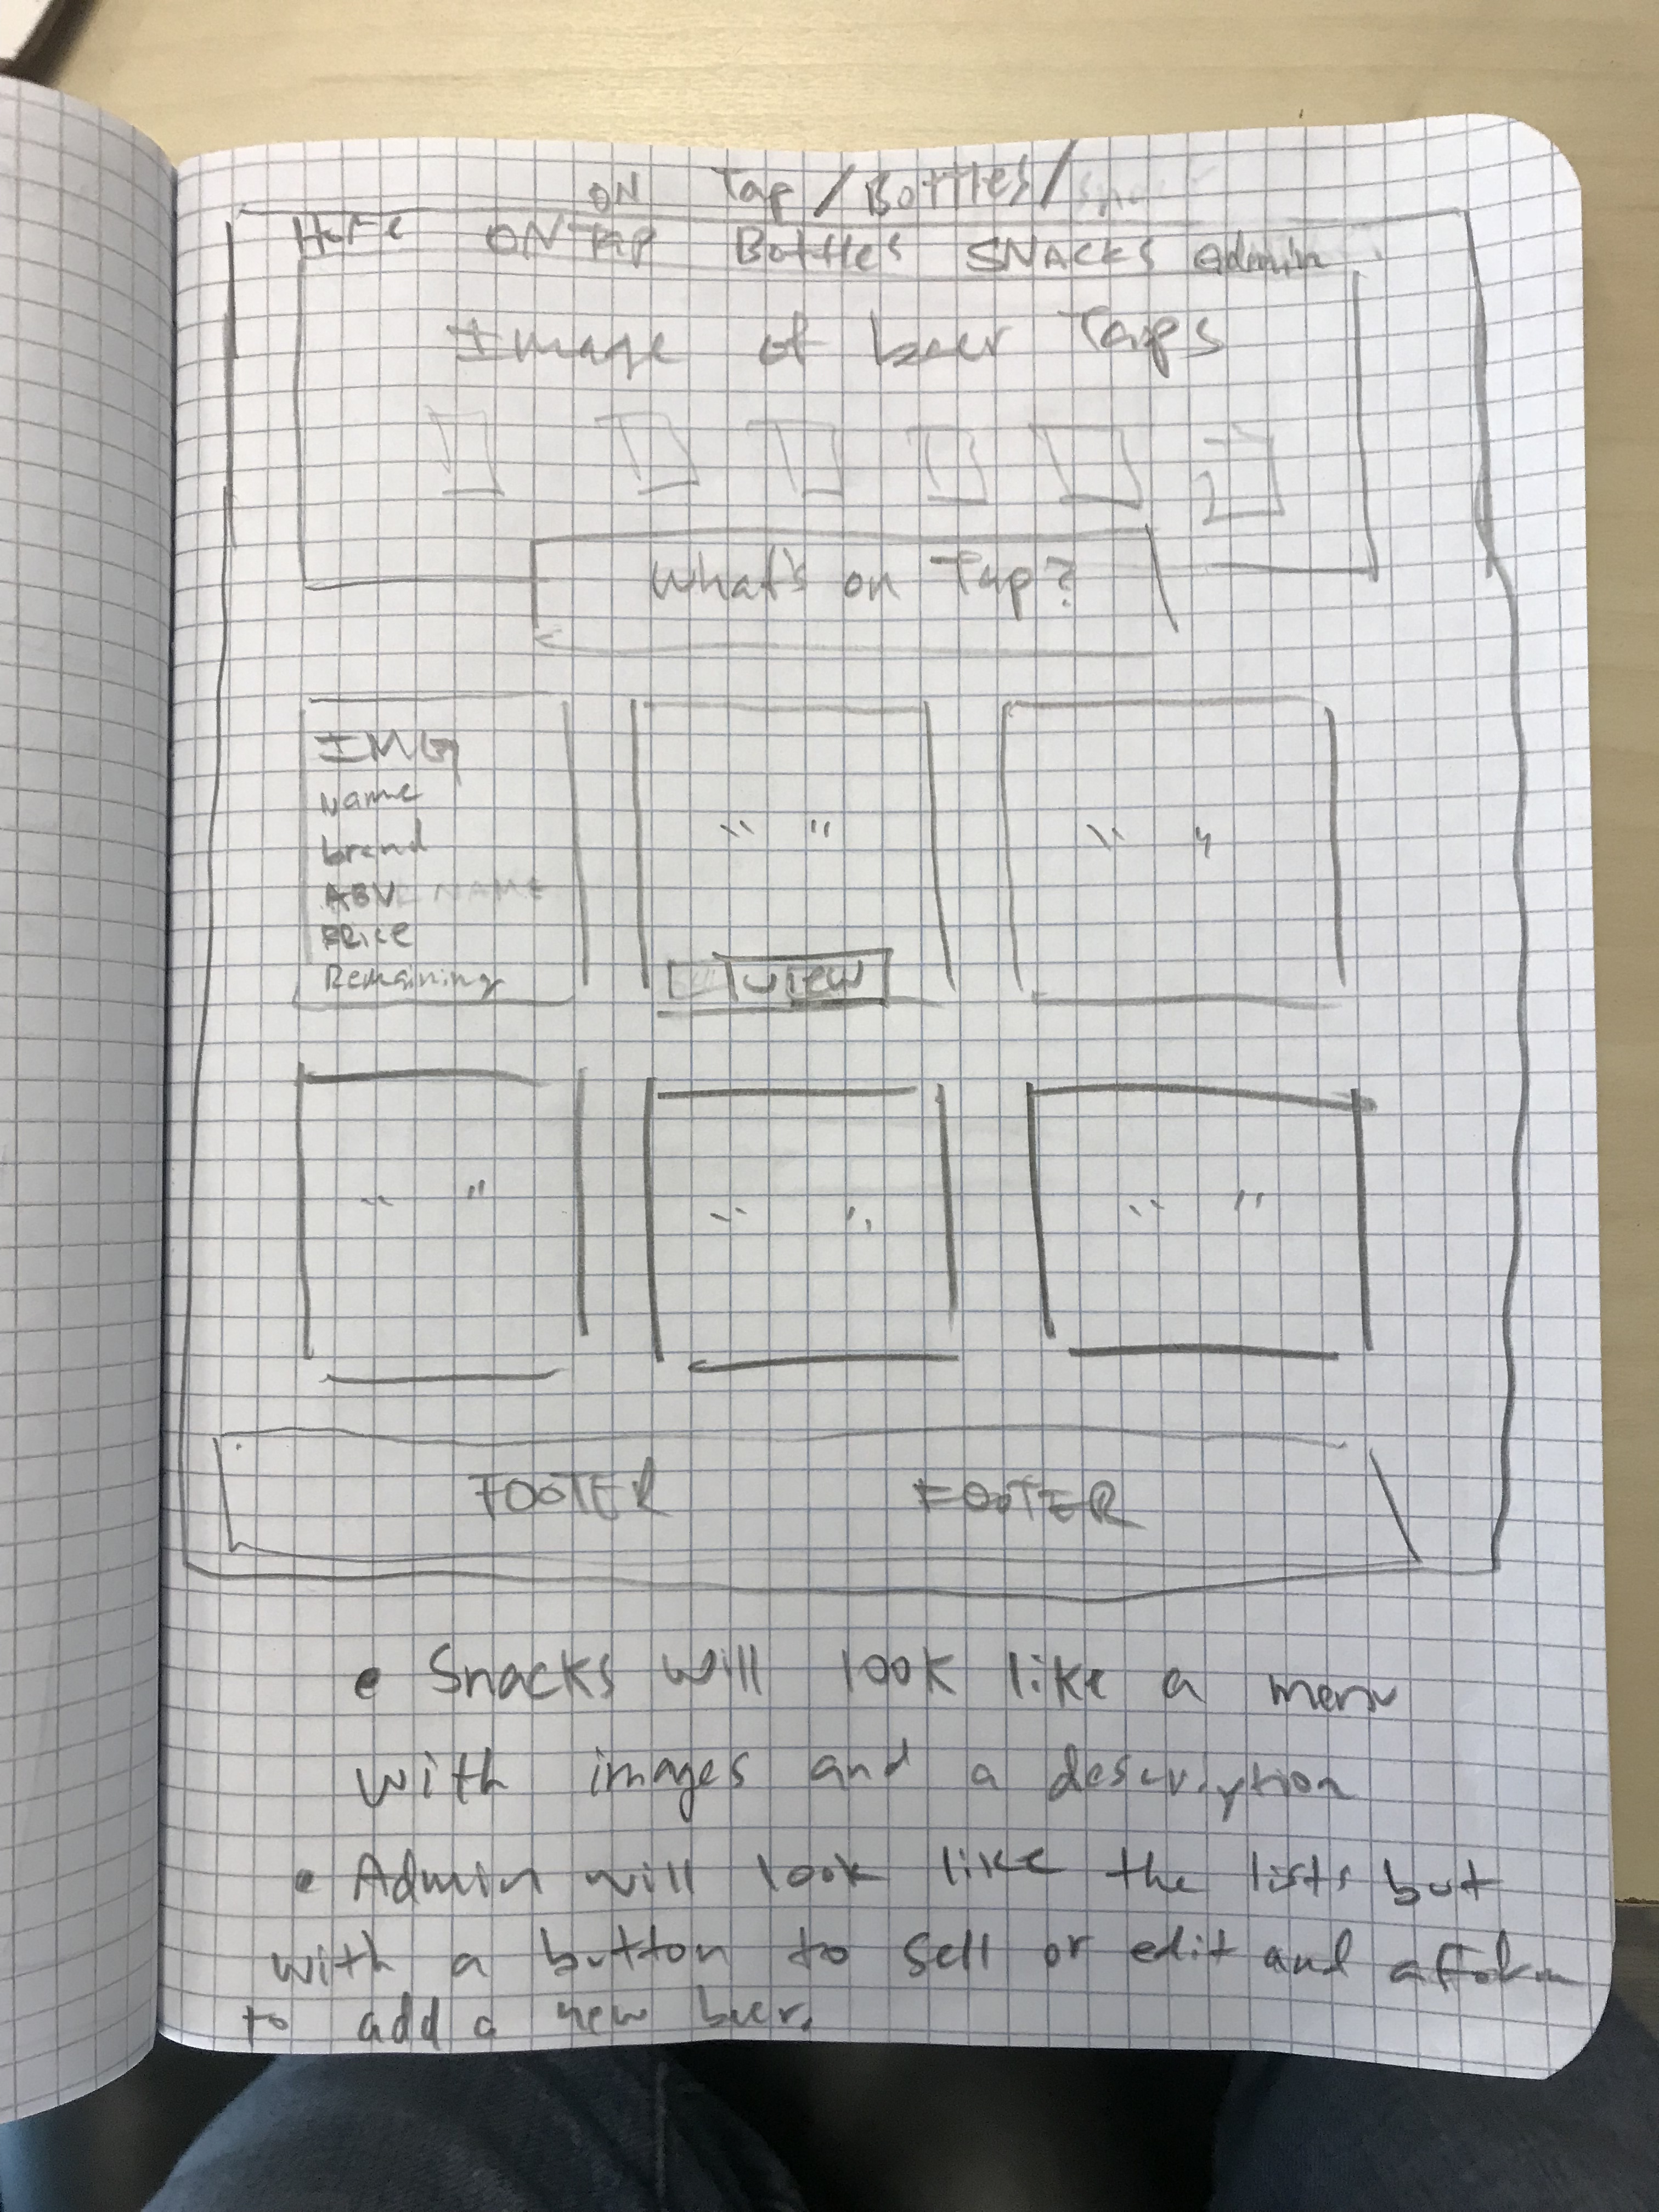 ON Tap / Bottles /
Home ON Tap Bottles SNACKS admin
Image of beer Taps
What's on Tap?
IMG
Name
brand
ABV NAME
PRice
Remaining
" "
view
" "
" "
" "
" "
FOOTER FOOTER
• Snacks will look like a menu
with images and a description
• Admin will look like the lists but
with a button to sell or edit and
to add a new beer.